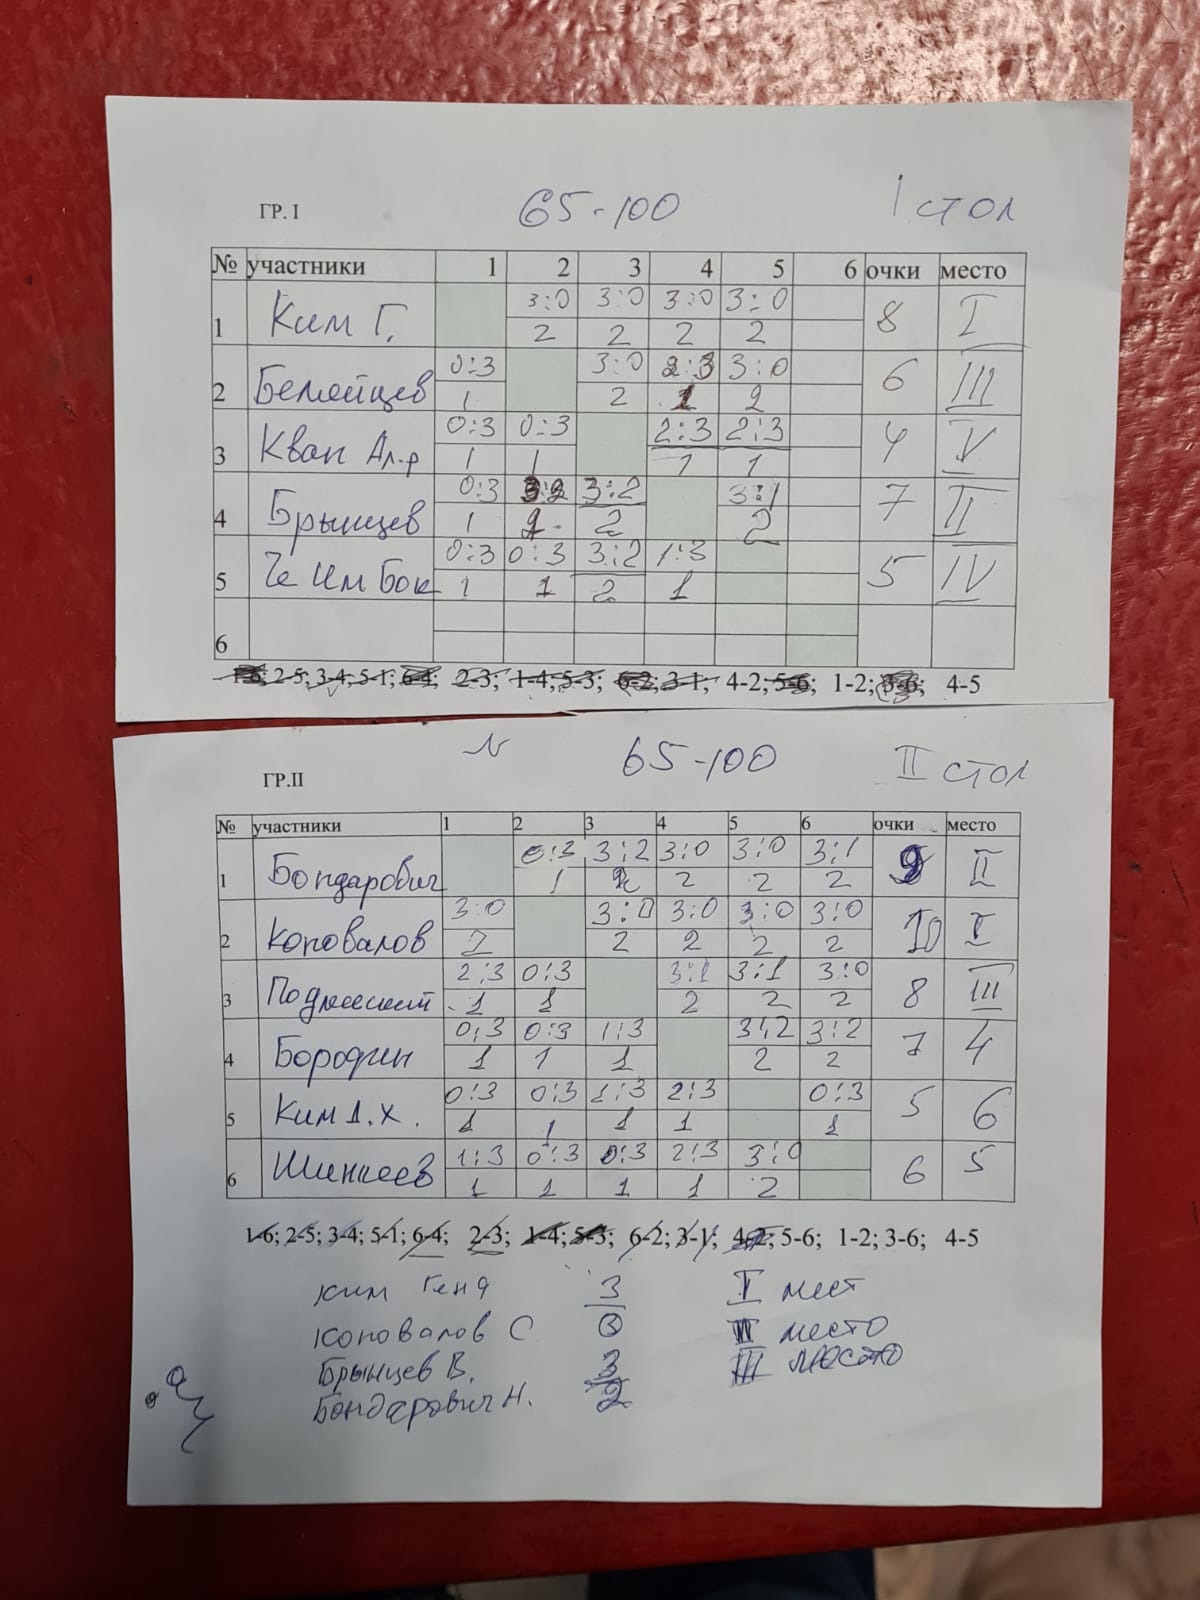 ГР. I 65-100 I стол
№ участники 1 2 3 4 5 6 очки место
3:0 3:0 3:0 3:0
1 Ким Г. 2 2 2 2 8 I
0:3 3:0 2:3 3:0
2 Беляйцев 1 2 1 2 6 III
0:3 0:3 2:3 2:3
3 Кван Ал-р 1 1 1 1 4 V
0:3 3:2 3:2 3:1
4 Брынцев 1 2 2 2 7 II
0:3 0:3 3:2 1:3
5 Че Им Бок 1 1 2 1 5 IV
6
1-6; 2-5; 3-4; 5-1; 6-4; 2-3; 1-4; 5-3; 6-2; 3-1; 4-2; 5-6; 1-2; 3-6; 4-5
ГР.II 65-100 II стол
№ участники 1 2 3 4 5 6 очки место
0:3 3:2 3:0 3:0 3:1
1 Бондарович 1 2 2 2 2 9 II
3:0 3:0 3:0 3:0 3:0
2 Коновалов 2 2 2 2 2 10 I
2:3 0:3 3:1 3:1 3:0
3 1 1 2 2 2 8 III
0:3 0:3 1:3 3:2 3:2
4 Бородин 1 1 1 2 2 7 4
0:3 0:3 1:3 2:3 0:3
5 Ким Д.Х. 1 1 1 1 1 5 6
1:3 0:3 0:3 2:3 3:0
6 Шинкеев 1 1 1 1 2 6 5
1-6; 2-5; 3-4; 5-1; 6-4; 2-3; 1-4; 5-3; 6-2; 3-1; 4-2; 5-6; 1-2; 3-6; 4-5
Ким Гена 3 I мест
Коновалов С 0 II место
Брынцев В. 3 III место
Бондарович Н. 2